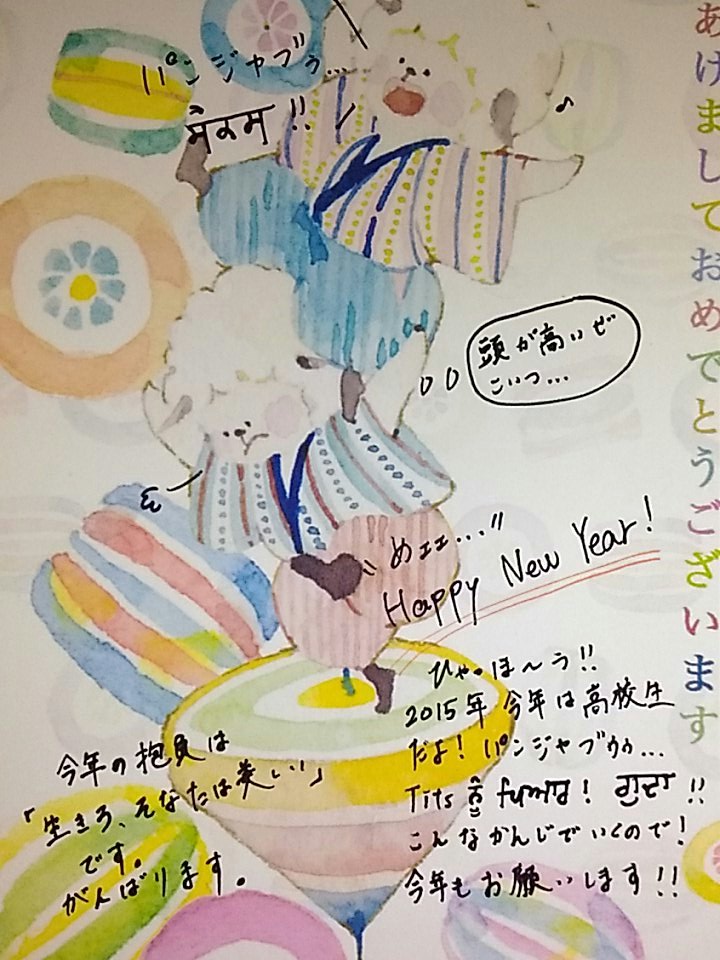 あけましておめでとうございます
パンジャブゥ...
!!
頭が高いぜ
こいつ...
"めェェ..."
Happy New Year!
ひゃっほ〜う!!
2015年 今年は高校生
だよ! パンジャブゥゥ...
Tits ! ਗੁਦਾ !!
こんなかんじでいくので!
今年もお願いします!!
今年の抱負は
「生きろ、そなたは美しい」
です。
がんばります。